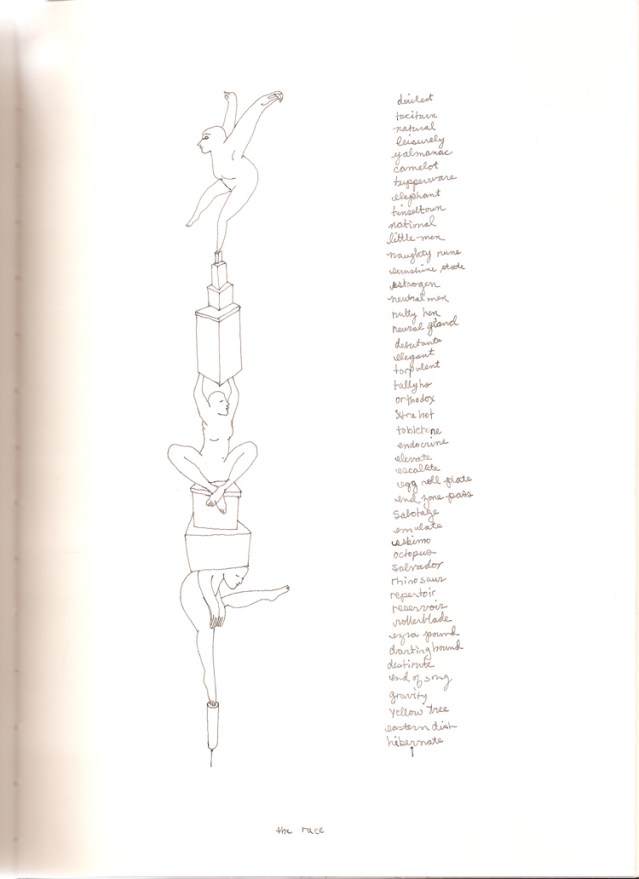 taciturn
natural
leisurely
yalmanac
camelot
tupperware
elephant
tinseltown
national
little men
naughty nune
sunshine state
estrogen
neutral men
nutty hen
neural gland
debutante
elegant
torpulent
tallyho
orthodox
Xtra hot
tabletone
endocrine
elevate
escallite
egg roll plate
end zone pass
Sabotage
emulate
eskimo
octopus
salvador
rhinosaur
repertoir
reservoir
rollerblade
ezra pound
darting hound
destitute
end of song
gravity
Yellow Tree
eastern dish
hibernate
the race